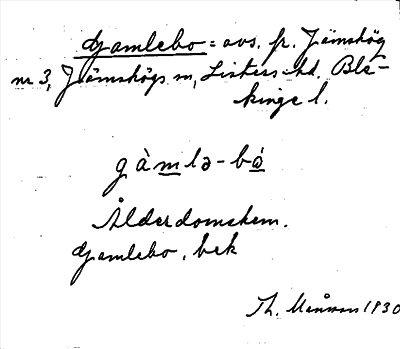 Gamlebo = avs. fr. Jämshög
nr 3, Jämshögs sn, Listers hd. Ble-
kinge l.
gàmlə-bó
Ålderdomshem.
Gamlebo, bek
Th. Månsson 1930